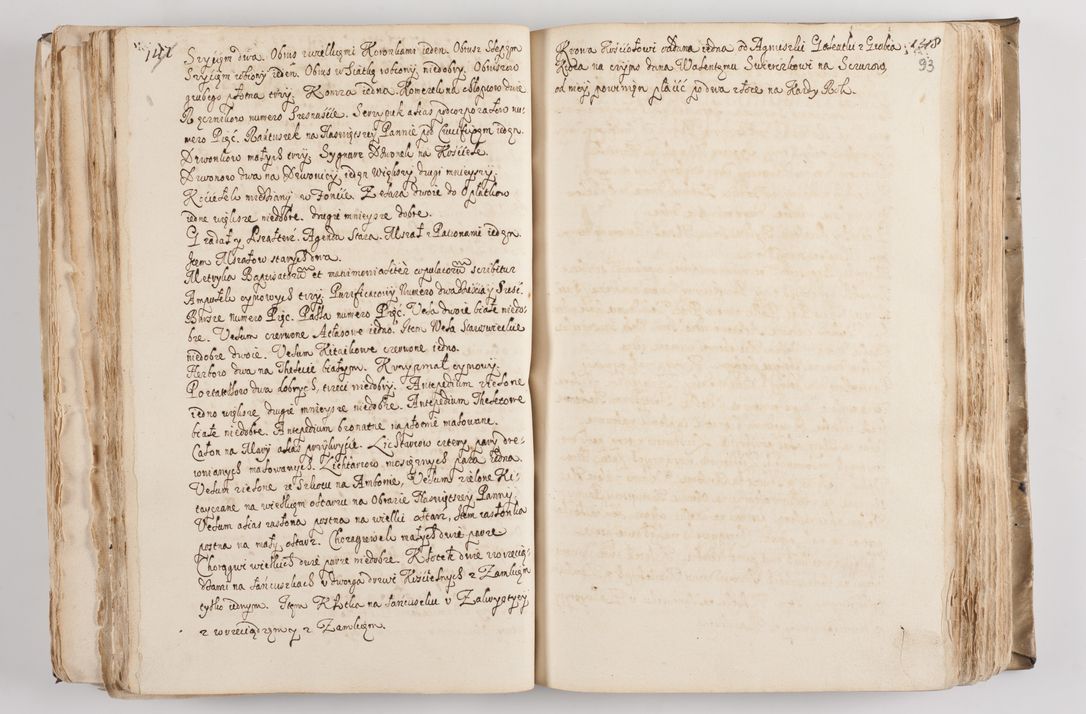 147
Szyciem dwa. Obrus z wielkiemi Koronkami ieden. Obrusz Sleszem
Szyciem robiony ieden. Obrus w Siatkę robiony niedobry. Obrusow
grubego płotna trzy. Komza iedna. Humerek na
Ręcznikow numero Trzynaście. alias podcorporałow nu-
mero Pięć. Rańtuszek na Naswiętszey Pannie pod Crucifixem ieden.
Dzwonkow małych trzy. Sygnarz Dzwonek na Kościele.
Dzwonow dwa na Dzwonicy ieden Większy drugi mnieyszy.
Kociełek miedziany w Foncie. Zelaza dwoie do Opłatkow
iedne większe niedobre. drugie mnieysze dobre.
Gradał y Psałterz. Agenda Stara. Mszał z Patronami ieden.
Item Mszałow starych dwa.
Metryka Baptisatorũ et matrimonialiter copulatorũ scribitur
Ampułek cynowych trzy. Purificatorzy Numero dwadzieścia y Sześć.
Bursze numero Pięć. Palla numero Pięć. Vela dwoie białe niedo-
bre. Velum czerwone Atłasowe iedno. Item Vela
niedobre dwoie. Velum Kitaikowe czerwone iedno.
Herbow dwa na Thelecie białym. cynowy.
Portatellow dwa dobrych, trzeci niedobry. Antepedium zielone
iedno większe drugie mnieysze niedobre. Antepedium Theletowe
białe niedobre. Antepedium brunatne na płotnie malowane.
Całon na Mary alias przykrycie. Lichtarzow cztery pary dre-
wnianych malowanych. Lichtarzow mosiężnych para iedna.
Velum zielone ze Sznotu na Ambonie, Velum zielone Ki-
tayczane na wielkiem ołtarzu na Obrazie Naswiętszey Panny.
Velum alias zasłona postna na wielki ołtarz, Item zasłonka
postna na mały ołtarz. Chorągiewek małych dwie parze
Chorągwi wielkich dwie parze niedobre. Kłotek dwie z wrzecią-
dzami na łańcuszkach v dwoyga drzwi Kościelnych z Zamkiem
tylko iednym. Item Kłotka na łańcuszku v Zakrystyey
z wrzeciądzem y z Zamkiem.
148
93
Krowa Kościołowi oddana iedna do Agnieszki z Grobia
Kroka na czynsz dana Walentemu Swierczkowi na
od niey powinien płacić po dwa złote na Kazdy Rok.